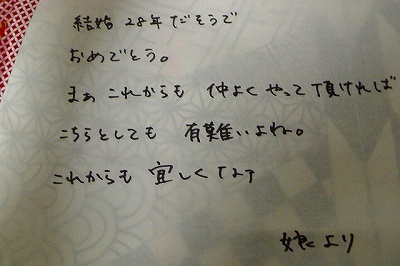 結婚 28年だそうで
おめでとう。
まぁ これからも 仲よく やって 頂ければ
こちらとしても 有難いよね。
これからも 宜しくです
娘より